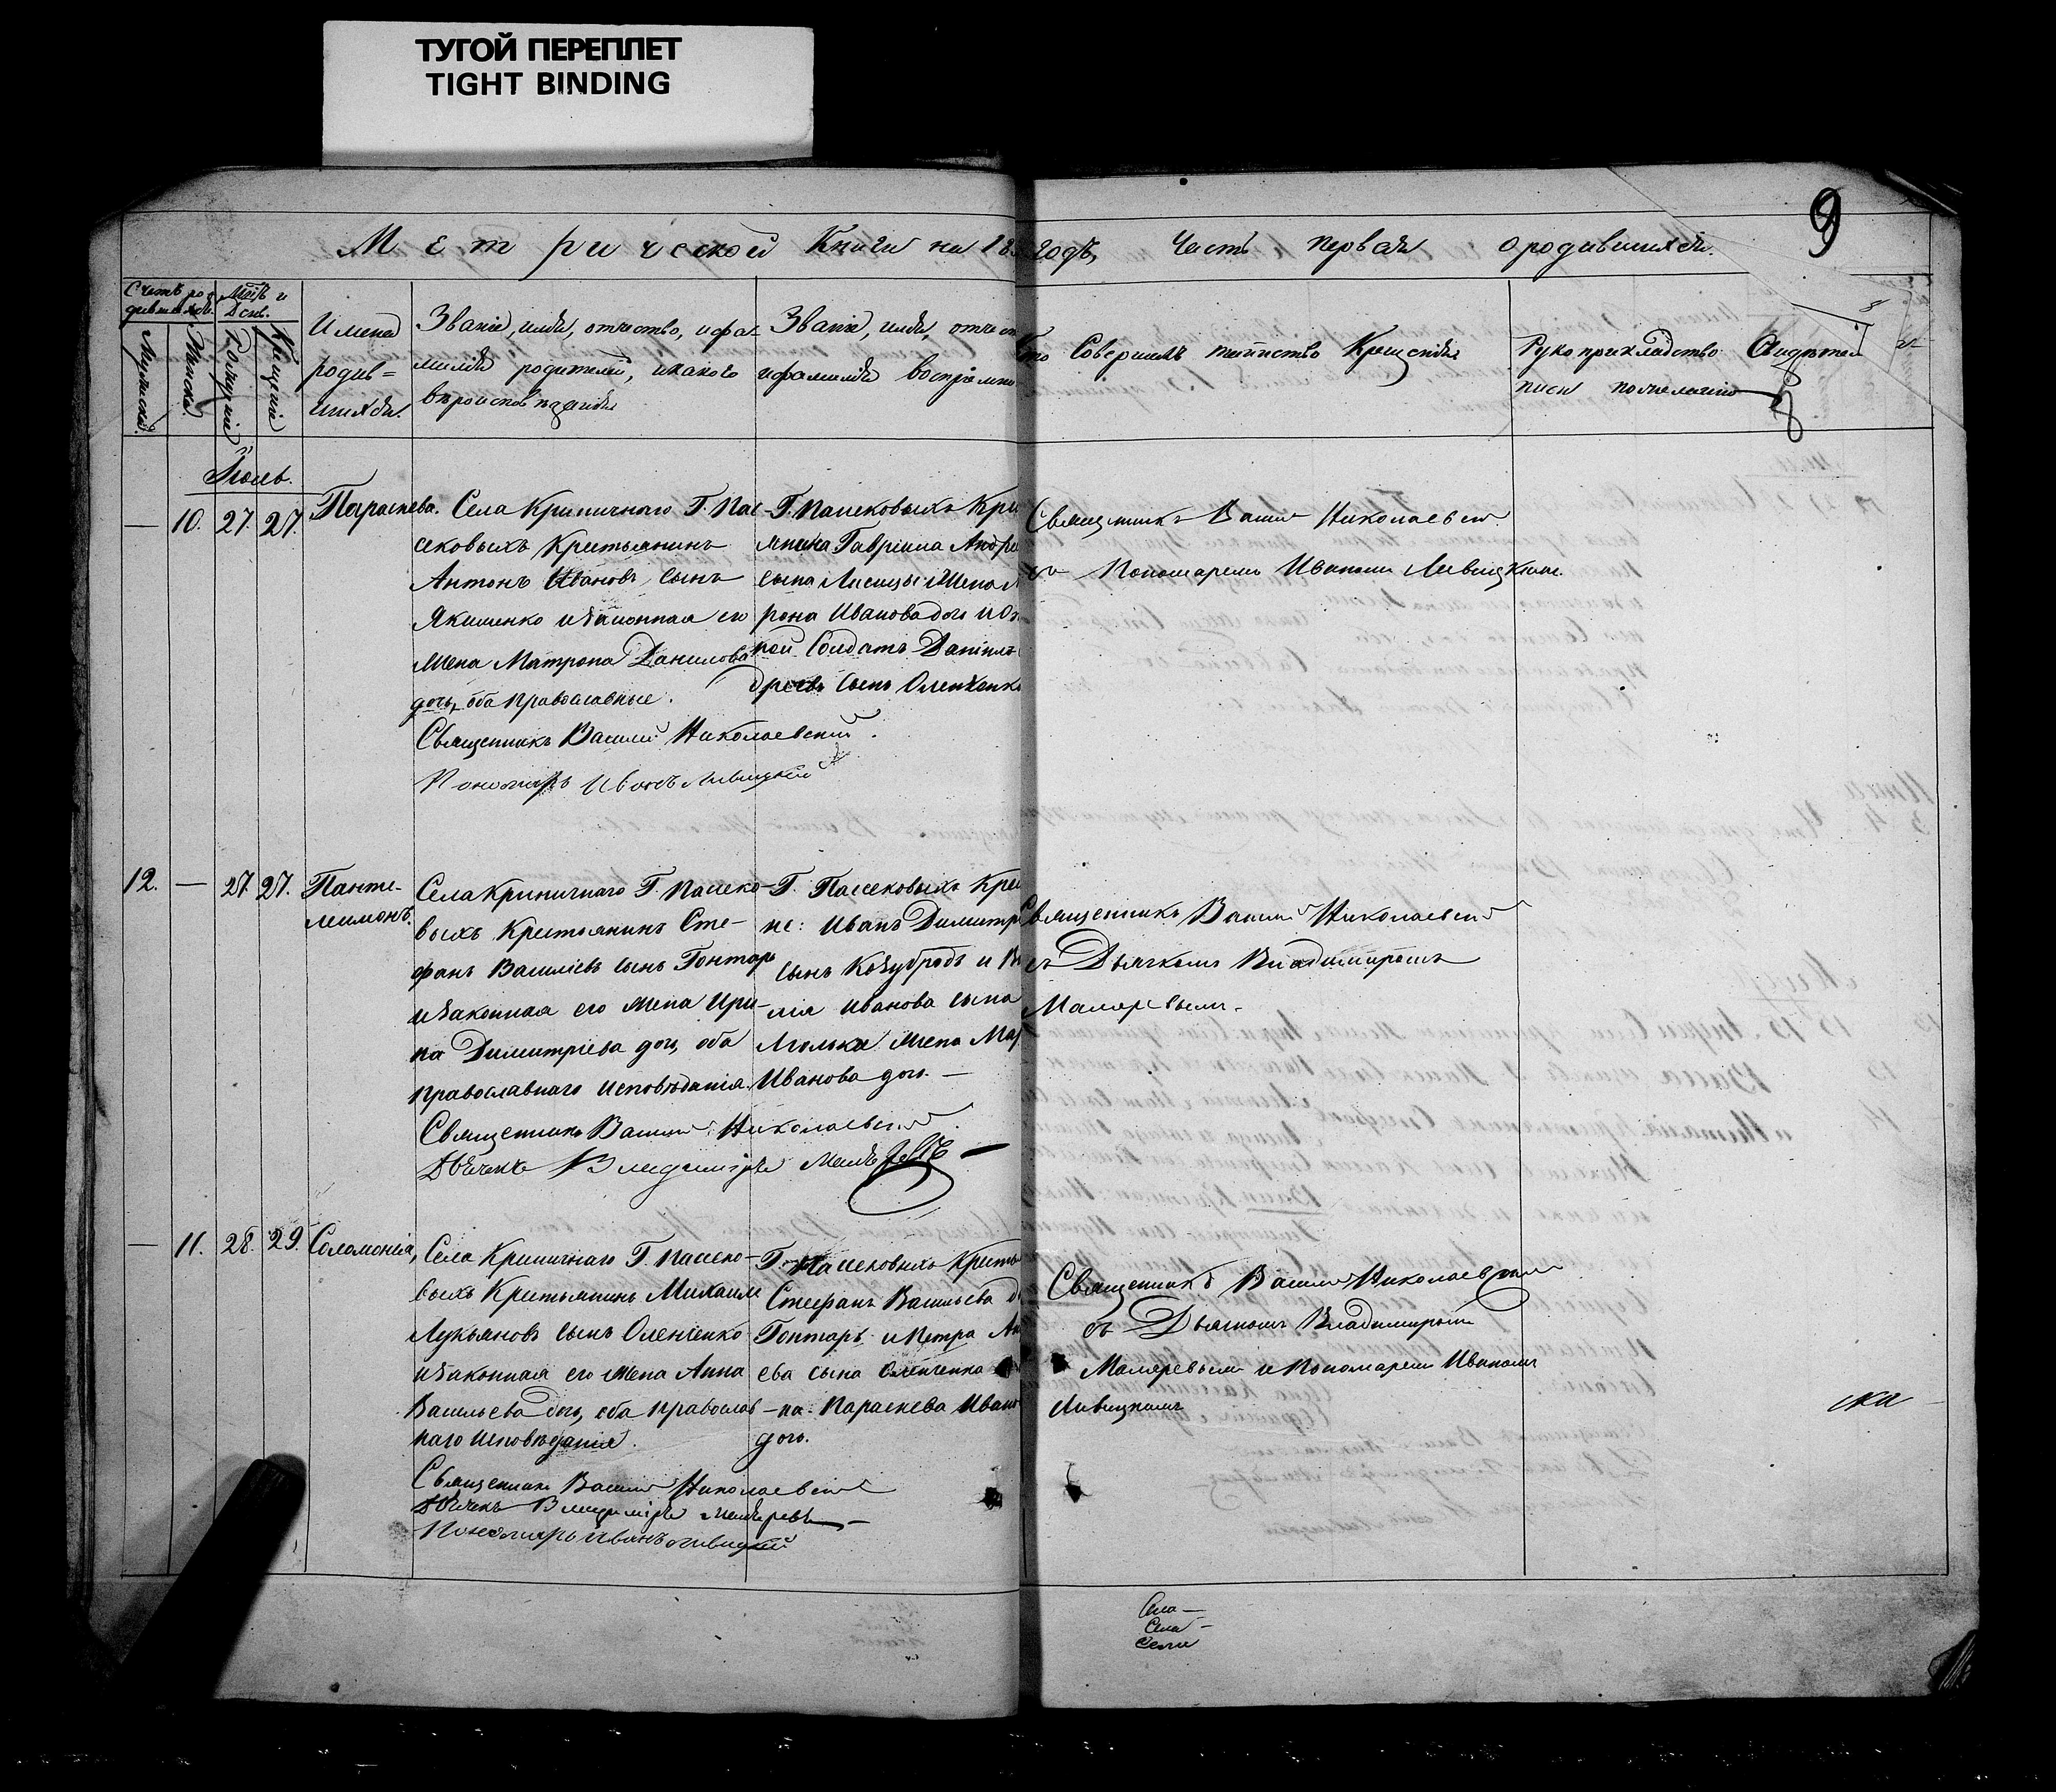 ТУГОЙ ПЕРЕПЛЕТ
TIGHT BINDING
9
Метрической Книги на 18
годъ, Часть первая о родившихся.
Счетъ ро-
дившихся.
Мужеска.
Женска.
Мѣсъ и
День.
Рожденія
Крещенія
Имена
родив=
шихся.
Званіе, имя, отчество, и фа-
милія родителей, и какого
вѣроисповѣданія
Званіе, имя, отчест
и фамилія воспріемн
Кто Совершилъ таинство Крещенія
Рукоприкладство Свидѣтел
писи по желанію
8
Іюль.
— 10. 27. 27.
Параскева.
Села Криничнаго Г. Пас-
сековыхъ Крестьянинъ
Антонъ Ивановъ сынъ
Якименко и законная его
жена Матрона Данилова
дочь, оба православные.
Священникъ Василій Николаевскій.
Пономарь Иванъ Ливицкій
Г. Пассековыхъ Кре
янина Гавріила Андре
сына Лисицы жена М
рона Иванова дочь и От
ной Солдатъ Даніилъ
дреевъ сынъ Оленченк
Священникъ Василій Николаевскій
съ Пономаремъ Иваномъ Ливицкимъ.
12. — 27. 27.
Панте-
леимонъ.
Села Криничнаго Г. Пассеко-
выхъ Крестьянинъ Сте-
фанъ Василіевъ сынъ Гонтарь
и законная его жена Ири-
на Димитріева дочь, оба
православнаго исповѣданія.
Священникъ Василій Николаевскій.
Дьячекъ Владиміръ
Г. Пассековыхъ Кре
не: Иванъ Димитр
сынъ Козубродъ и В
лія Иванова сына
жена Мар
Иванова дочь. —
Священникъ Василій Николаевскій
съ Дьячкомъ Владимиромъ
Маляревымъ.
— 11. 28. 29.
Соломонія,
Села Криничнаго Г. Пассеко-
выхъ Крестьянинъ Михаилъ
Лукьяновъ сынъ Оленченко
и законная его жена Анна
Васильева дочь, оба православ-
наго исповѣданія.
Священникъ Василій Николаевскій
Дьячекъ Владиміръ Маляревъ
Пономарь Иванъ Ливицкій
Г. Пассековыхъ Кресть
Стефанъ Васильева
Гонтарь и Петра Ан
ева сына Оленченка
на Параскева Ивано
дочь.
Священникъ Василій Николаевскій
съ Дьячкомъ Владимиромъ
Маляревымъ и Пономаремъ Иваномъ
Ливицкимъ
ска
Села —
Села —
Села